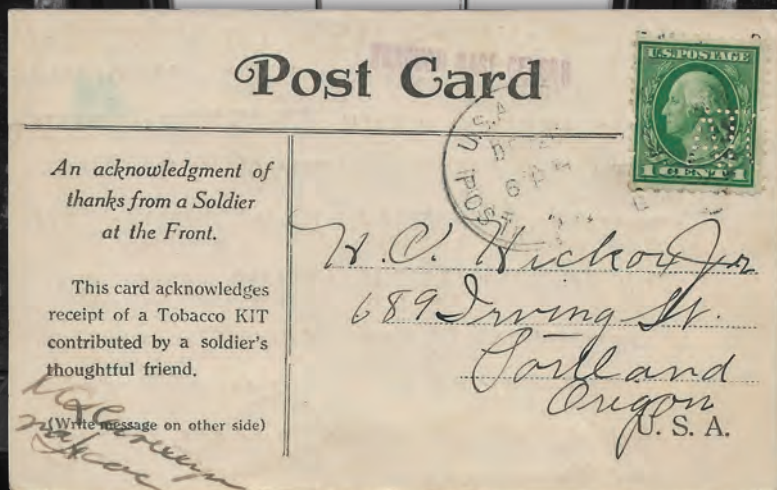 Post Card
U.S. POSTAGE
1 CENT 1
U.S.A
6 P M
U S POST
An acknowledgment of
thanks from a Soldier
at the Front.
This card acknowledges
receipt of a Tobacco KIT
contributed by a soldier's
thoughtful friend.
(Write message on other side)
689 Irving St.
Portland
Oregon
U. S. A.